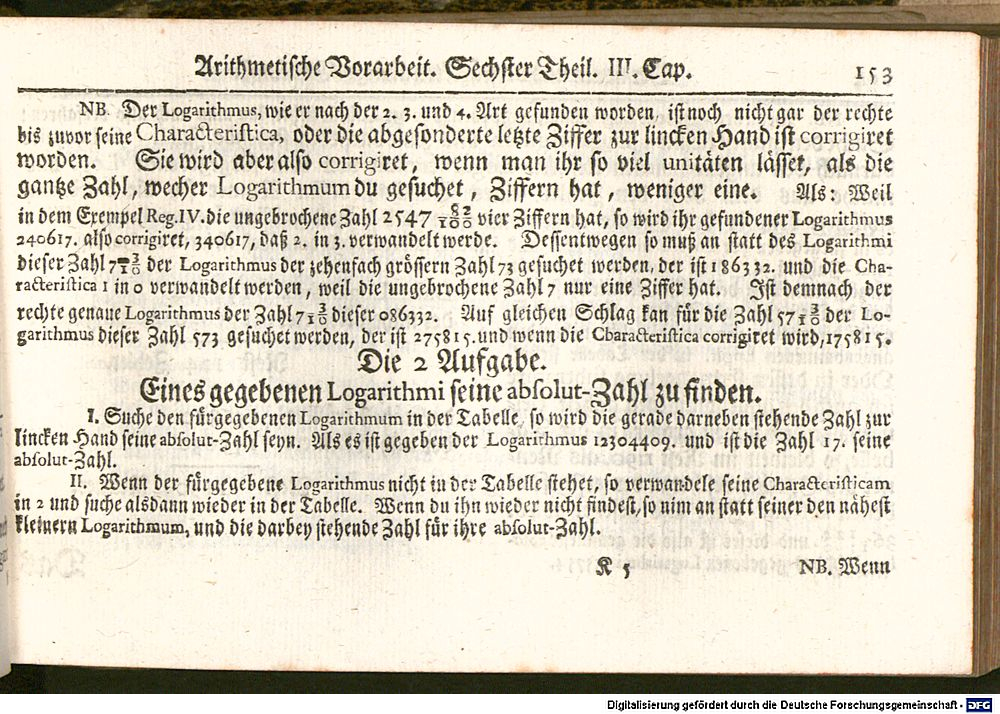 Arithmetische Vorarbeit. Sechster Theil. III. Cap. 153
NB. Der Logarithmus, wie er nach der 2. 3. und 4. Art gefunden worden, ist noch nicht gar der rechte
bis zuvor seine Characteristica, oder die abgesonderte letzte Ziffer zur lincken Hand ist corrigiret
worden. Sie wird aber also corrigiret, wenn man ihr so viel unitäten lässet, als die
gantze Zahl, wecher Logarithmum du gesuchet, Ziffern hat, weniger eine. Als: Weil
in dem Exempel Reg. IV. die ungebrochene Zahl 2547 82/100 vier Ziffern hat, so wird ihr gefundener Logarithmus
240617. also corrigiret, 340617, daß 2. in 3. verwandelt werde. Dessentwegen so muß an statt des Logarithmi
dieser Zahl 7 3/10 der Logarithmus der zehenfach grössern Zahl 73 gesuchet werden, der ist 186332. und die Cha-
racteristica 1 in 0 verwandelt werden, weil die ungebrochene Zahl 7 nur eine Ziffer hat. Ist demnach der
rechte genaue Logarithmus der Zahl 7 3/10 dieser 086332. Auf gleichen Schlag kan für die Zahl 57 3/10 der Lo-
garithmus dieser Zahl 573 gesuchet werden, der ist 275815. und wenn die Characteristica corrigiret wird, 175815.
Die 2 Aufgabe.
Eines gegebenen Logarithmi seine absolut-Zahl zu finden.
I. Suche den fürgegebenen Logarithmum in der Tabelle, so wird die gerade darneben stehende Zahl zur
lincken Hand seine absolut-Zahl seyn. Als es ist gegeben der Logarithmus 12304409. und ist die Zahl 17. seine
absolut-Zahl.
II. Wenn der fürgegebene Logarithmus nicht in der Tabelle stehet, so verwandele seine Characteristicam
in 2 und suche alsdann wieder in der Tabelle. Wenn du ihn wieder nicht findest, so nim an statt seiner den nähest
kleinern Logarithmum, und die darbey stehende Zahl für ihre absolut-Zahl.
K 5 NB. Wenn
Digitalisierung gefördert durch die Deutsche Forschungsgemeinschaft - DFG